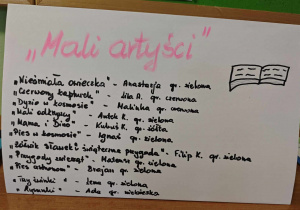 „Mali artyści"
„Nieśmiała owieczka" - Anastazja gr. zielona
„Czerwony kapturek" - Lila A. gr. czerwona
„Dynio w kosmosie" - Malinka gr. czerwona
„Mali odkrywcy" - Antek K. gr. zielona
„Mama i Dino" - Kubuś K. gr. żółta
„Pies w kosmosie" - Ignaś gr. zielona
„Żółwik Sławek i świąteczna przygoda" - Filip K. gr. zielona
„Przygody zwierząt" - gr. zielona
„Pies astronom" - Brajan gr. zielona
„Trzy świnki" - Lena gr. zielona
„Rysunki" - Ada gr. niebieska